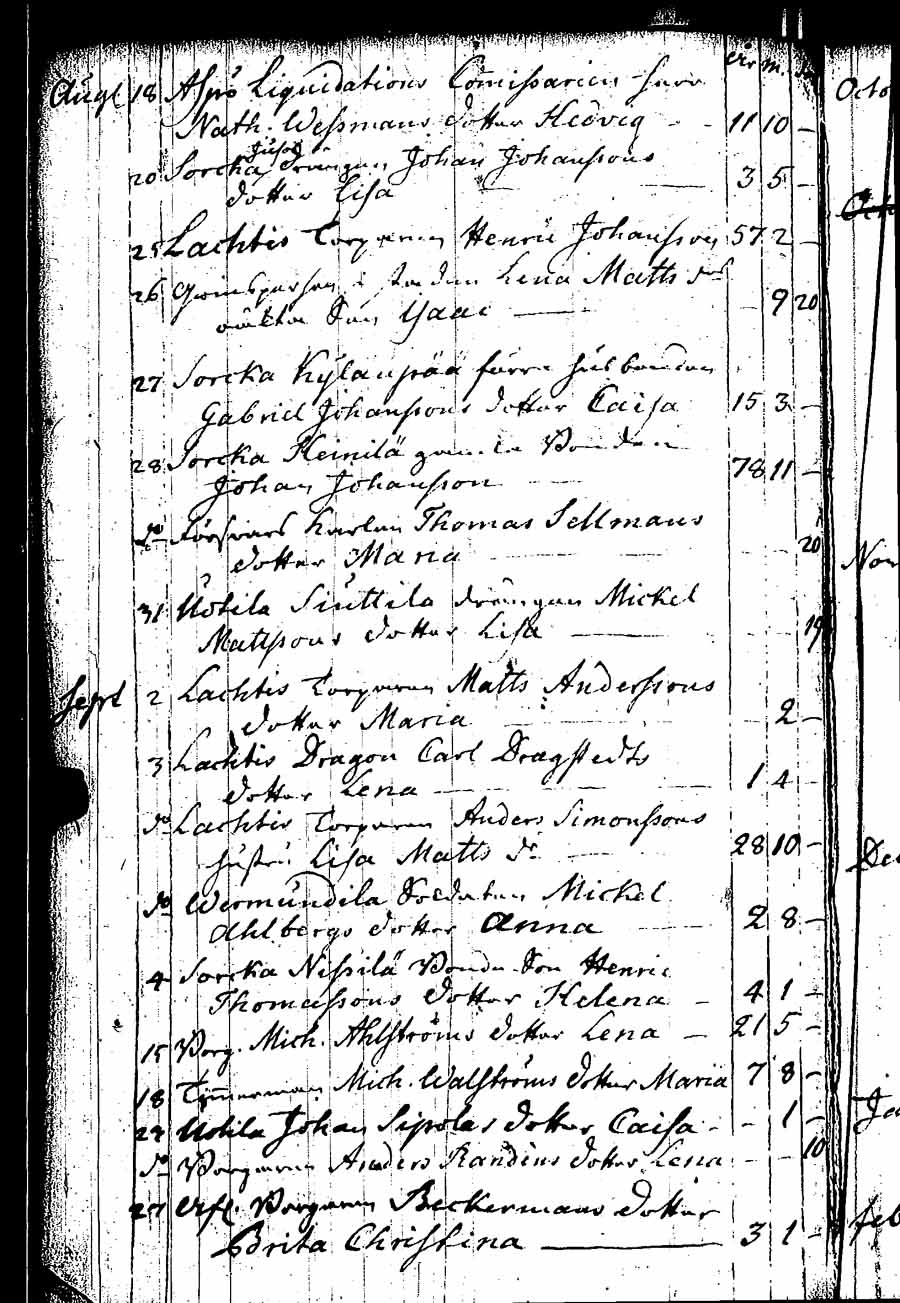 åir m. da
Augt 18 Aspö Liquidations Comissarien Herr
Nath. Wessmans dotter Hedvig - - 11 10 -
20 Sorcka Jusos drängen Johan Johanssons
dotter Lisa 3 5 -
25 Lachtis Torparen Henric Johansson 57 2 -
26 qvinspersonen i staden Lena Matts dr
oäkta Son Isaac - 9 20
27 Sorcka Kylänpää förre husbonden
Gabriel Johanssons dotter Caisa 15 3 -
28 Sorcka Heinilä gamla Bonden
Johan Johansson 78 11 -
do Försvars Karlen Thomas Sellmans
dotter Maria 20
31 Uotila Siuttila drängen Mickel
Mattssons dotter Lisa 19
Sept 2 Lachtis Torparen Matts Anderssons
dotter Maria 2 -
3 Lachtis Dragon Carl Dragstedts
dotter Lena 1 4 -
do Lachtis Torparen Anders Simonssons
hustru Lisa Matts dr 28 10 -
do Wermundila Soldaten Mickel
Ahlbergs dotter Anna 2 8 -
4 Sorcka Nissilä Bonde Son Henric
Thomassons dotter Helena - 4 1 -
15 Borg. Mich. Ahlströms dotter Lena - 21 5 -
18 Timmerman Mich. Walströms dotter Maria 7 8 -
24 Uotila Johan Sipolas dotter Caisa - - 1 -
do Borgaren Anders Randins dotter Lena - - 10
27 Borgaren Beckermans dotter
Brita Christina 3 1 -
Octo
Octo
Nov
Dec
Ja
feb